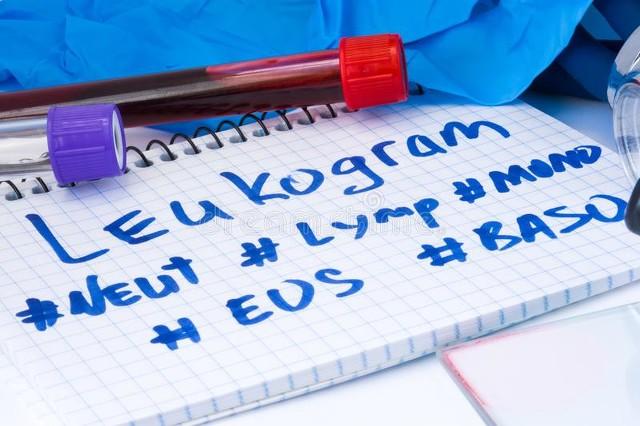 Leukogram
#NEUT #Lymp #MONO
#EOS #BASO